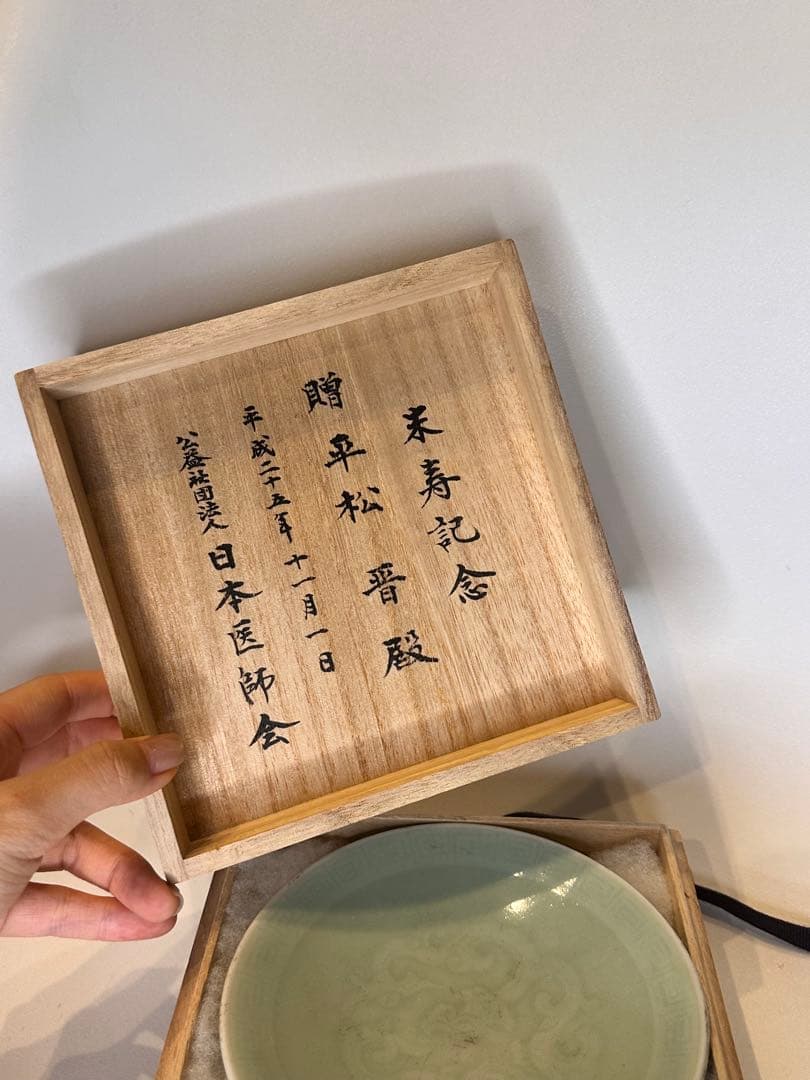 米寿記念
贈 平松 晋 殿
平成二十五年十一月一日
公益社団法人 日本医師会